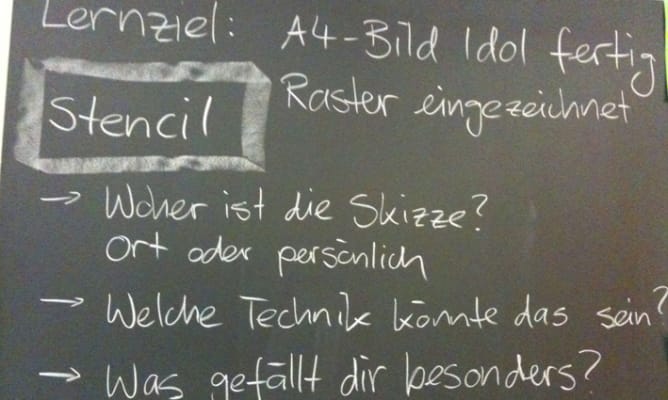 Lernziel: A4-Bild Idol fertig
Raster eingezeichnet
Stencil
→ Woher ist die Skizze?
Ort oder persönlich
→ Welche Technik könnte das sein?
→ Was gefällt dir besonders?